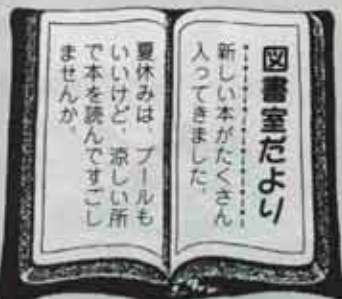 図書室だより
新しい本がたくさん
入ってきました。
夏休みは、プールも
いいけど、涼しい所
で本を読んですごし
ませんか。